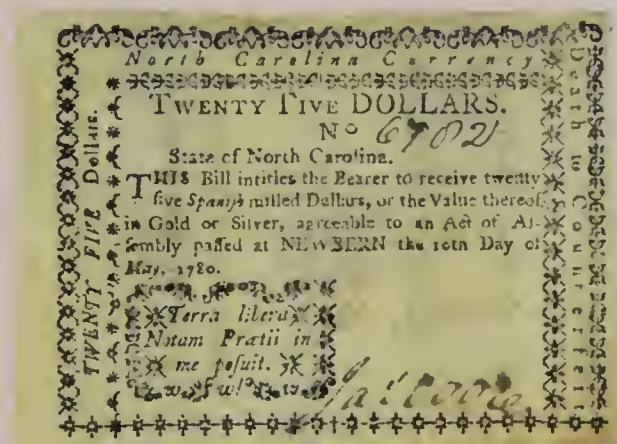 North Carolina Currency
TWENTY FIVE DOLLARS.
No 6782
State of North Carolina.
THIS Bill intitles the Bearer to receive twenty
five Spanish milled Dollars, or the Value thereof
in Gold or Silver, agreeable to an Act of As-
sembly passed at NEWBERN the 10th Day of
May, 1780.
Terra libera
Notam Prætii in
me posuit.
TWENTY FIVE Dollars.
Death to Counterfeit